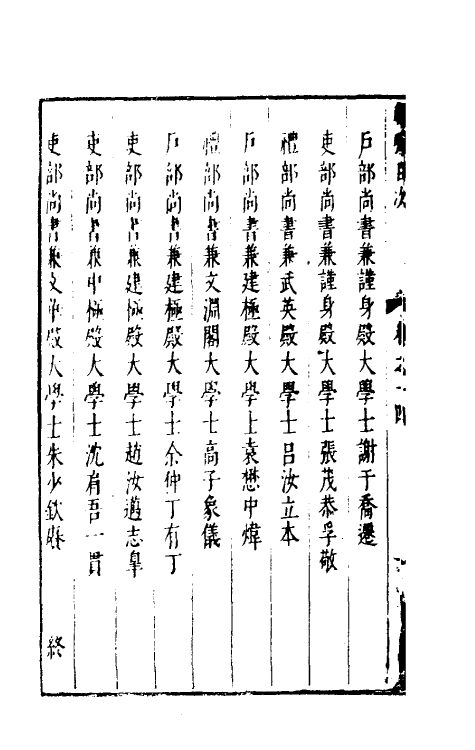 戶部尚書兼謹身殿大學士謝于喬遷
吏部尚書兼謹身殿大學士張茂恭孚敬
禮部尚書兼武英殿大學士呂汝立本
戶部尚書兼建極殿大學士袁懋中煒
禮部尚書兼文淵閣大學士高子象儀
戶部尚書兼建極殿大學士余仲丁有丁
吏部尚書兼建極殿大學士趙汝邁志皋
吏部尚書兼中極殿大學士沈肩吾一貫
吏部尚書兼文華殿大學士朱少欽賡
終